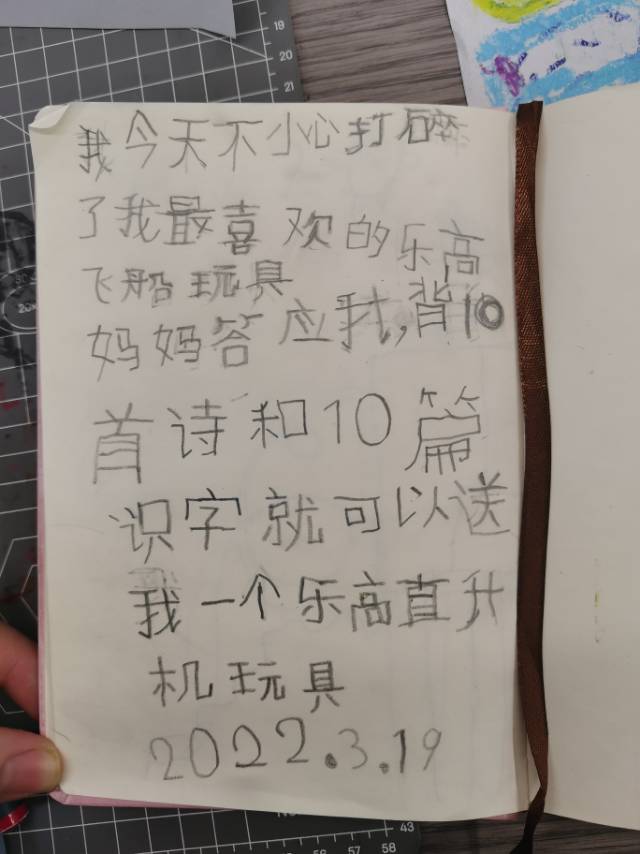 19
20
21
我今天不小心打碎
了我最喜欢的乐高
飞船玩具
妈妈答应我,背10
首诗和10篇
识字就可以送
我一个乐高直升
机玩具
2022.3.19
43
56 57 58